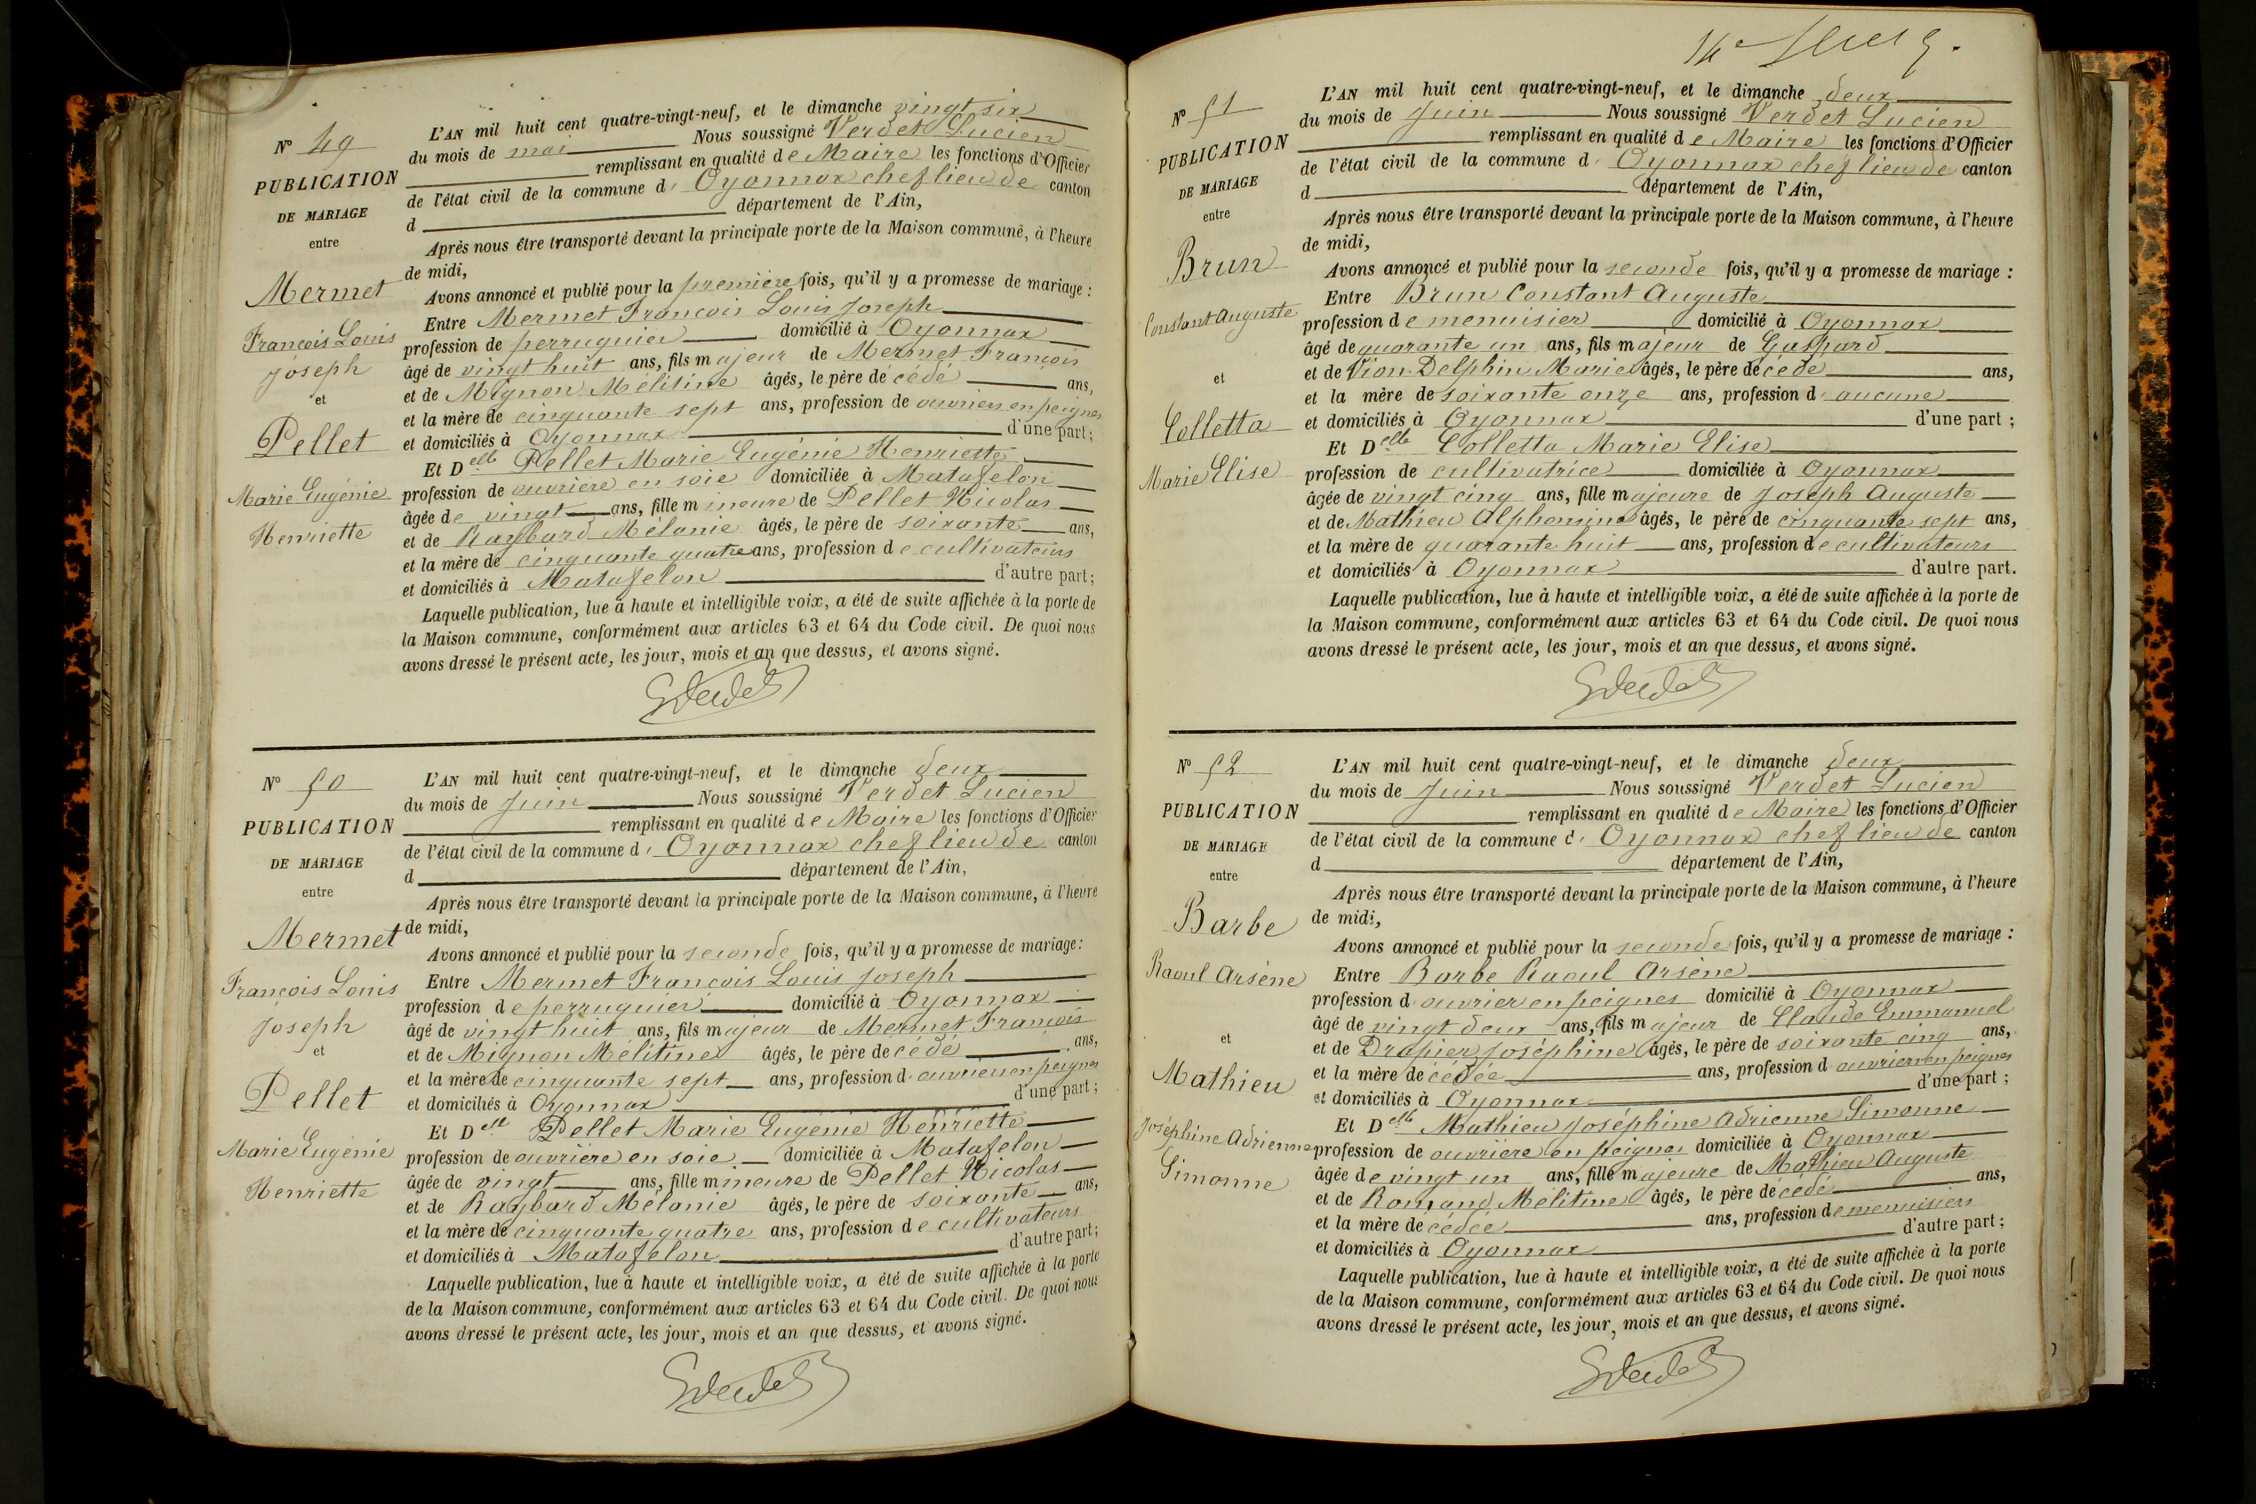 N° 49
PUBLICATION
DE MARIAGE
entre
Mermet
François Louis
Joseph
et
Pellet
Marie Eugénie
Henriette
L'AN mil huit cent quatre-vingt-neuf, et le dimanche vingt six
du mois de mai Nous soussigné Verdet Lucien
remplissant en qualité de Maire les fonctions d'Officier
de l'état civil de la commune d' Oyonnax chef lieu de canton
d département de l'Ain,
Après nous être transporté devant la principale porte de la Maison commune, à l'heure
de midi,
Avons annoncé et publié pour la première fois, qu'il y a promesse de mariage :
Entre Mermet François Louis Joseph
profession de perruquier domicilié à Oyonnax
âgé de vingt huit ans, fils majeur de Mermet François
et de Mignon Mélitine âgés, le père décédé ans,
et la mère de cinquante sept ans, profession de ouvriers en peignes
et domiciliés à Oyonnax d'une part ;
Et Delle Pellet Marie Eugénie Henriette
profession de ouvrière en soie domiciliée à Matafelon
âgée de vingt ans, fille mineure de Pellet Nicolas
et de Raybard Mélanie âgés, le père de soixante ans,
et la mère de cinquante quatre ans, profession de cultivateurs
et domiciliés à Matafelon d'autre part ;
Laquelle publication, lue à haute et intelligible voix, a été de suite affichée à la porte de
la Maison commune, conformément aux articles 63 et 64 du Code civil. De quoi nous
avons dressé le présent acte, les jour, mois et an que dessus, et avons signé.
N° 50
PUBLICATION
DE MARIAGE
entre
Mermet
François Louis
Joseph
et
Pellet
Marie Eugénie
Henriette
L'AN mil huit cent quatre-vingt-neuf, et le dimanche deux
du mois de Juin Nous soussigné Verdet Lucien
remplissant en qualité de Maire les fonctions d'Officier
de l'état civil de la commune d' Oyonnax chef lieu de canton
d département de l'Ain,
Après nous être transporté devant la principale porte de la Maison commune, à l'heure
de midi,
Avons annoncé et publié pour la seconde fois, qu'il y a promesse de mariage :
Entre Mermet François Louis Joseph
profession de perruquier domicilié à Oyonnax
âgé de vingt huit ans, fils majeur de Mermet François
et de Mignon Mélitine âgés, le père décédé ans,
et la mère de cinquante sept ans, profession d' ouvriers en peignes
et domiciliés à Oyonnax d'une part ;
Et Delle Pellet Marie Eugénie Henriette
profession de ouvrière en soie domiciliée à Matafelon
âgée de vingt ans, fille mineure de Pellet Nicolas
et de Raybard Mélanie âgés, le père de soixante ans,
et la mère de cinquante quatre ans, profession de cultivateurs
et domiciliés à Matafelon d'autre part ;
Laquelle publication, lue à haute et intelligible voix, a été de suite affichée à la porte
de la Maison commune, conformément aux articles 63 et 64 du Code civil. De quoi nous
avons dressé le présent acte, les jour, mois et an que dessus, et avons signé.
N° 51
PUBLICATION
DE MARIAGE
entre
Brun
Constant Auguste
et
Colletta
Marie Elise
L'AN mil huit cent quatre-vingt-neuf, et le dimanche deux
du mois de Juin Nous soussigné Verdet Lucien
remplissant en qualité de Maire les fonctions d'Officier
de l'état civil de la commune d' Oyonnax chef lieu de canton
d département de l'Ain,
Après nous être transporté devant la principale porte de la Maison commune, à l'heure
de midi,
Avons annoncé et publié pour la seconde fois, qu'il y a promesse de mariage :
Entre Brun Constant Auguste
profession de menuisier domicilié à Oyonnax
âgé de quarante un ans, fils majeur de Gaspard
et de Vion-Delphin Marie âgés, le père décédé ans,
et la mère de soixante onze ans, profession d' aucune
et domiciliés à Oyonnax d'une part ;
Et Delle Colletta Marie Elise
profession de cultivatrice domiciliée à Oyonnax
âgée de vingt cinq ans, fille majeure de Joseph Auguste
et de Mathieu Alphonsine âgés, le père de cinquante sept ans,
et la mère de quarante huit ans, profession de cultivateurs
et domiciliés à Oyonnax d'autre part.
Laquelle publication, lue à haute et intelligible voix, a été de suite affichée à la porte de
la Maison commune, conformément aux articles 63 et 64 du Code civil. De quoi nous
avons dressé le présent acte, les jour, mois et an que dessus, et avons signé.
N° 52
PUBLICATION
DE MARIAGE
entre
Barbe
Raoul Arsène
et
Mathieu
Joséphine Adrienne
Simonne
L'AN mil huit cent quatre-vingt-neuf, et le dimanche deux
du mois de Juin Nous soussigné Verdet Lucien
remplissant en qualité de Maire les fonctions d'Officier
de l'état civil de la commune d' Oyonnax chef lieu de canton
d département de l'Ain,
Après nous être transporté devant la principale porte de la Maison commune, à l'heure
de midi,
Avons annoncé et publié pour la seconde fois, qu'il y a promesse de mariage :
Entre Barbe Raoul Arsène
profession d' ouvrier en peignes domicilié à Oyonnax
âgé de vingt deux ans, fils majeur de Claude Emmanuel
et de Drapier Joséphine âgés, le père de soixante cinq ans,
et la mère décédée ans, profession d' ouvrier en peignes
et domiciliés à Oyonnax d'une part ;
Et Delle Mathieu Joséphine Adrienne Simonne
profession de ouvrière en peignes domiciliée à Oyonnax
âgée de vingt un ans, fille majeure de Mathieu Auguste
et de Romand Mélitine âgés, le père décédé ans,
et la mère décédée ans, profession de menuisier
et domiciliés à Oyonnax d'autre part ;
Laquelle publication, lue à haute et intelligible voix, a été de suite affichée à la porte
de la Maison commune, conformément aux articles 63 et 64 du Code civil. De quoi nous
avons dressé le présent acte, les jour, mois et an que dessus, et avons signé.